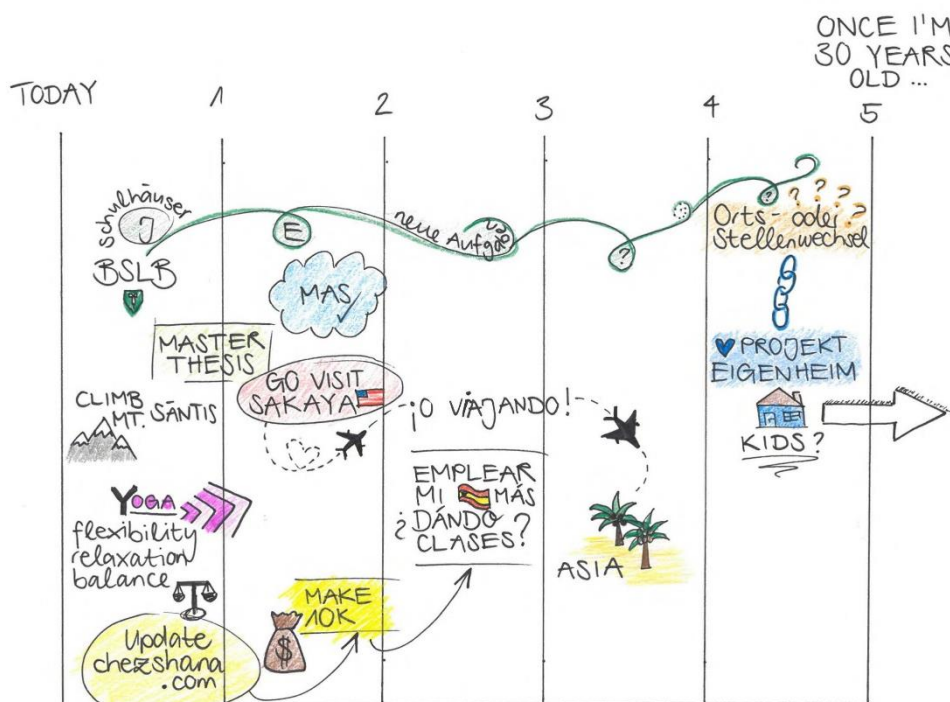 ONCE I'M
30 YEARS
OLD ...
TODAY
1
2
3
4
5
Schulhäuser
J
BSLB
E
neue Aufgabe
?
?
? ? ? ?
Orts- oder
Stellenwechsel
MAS
MASTER
THESIS
GO VISIT
SAKAYA
♥ PROJEKT
EIGENHEIM
KIDS?
CLIMB
MT. SÄNTIS
¡O VIAJANDO!
YOGA
flexibility
relaxation
balance
EMPLEAR
MI MÁS
¿DÁNDO
CLASES?
ASIA
MAKE
10K
$
Update
chezshana
.com